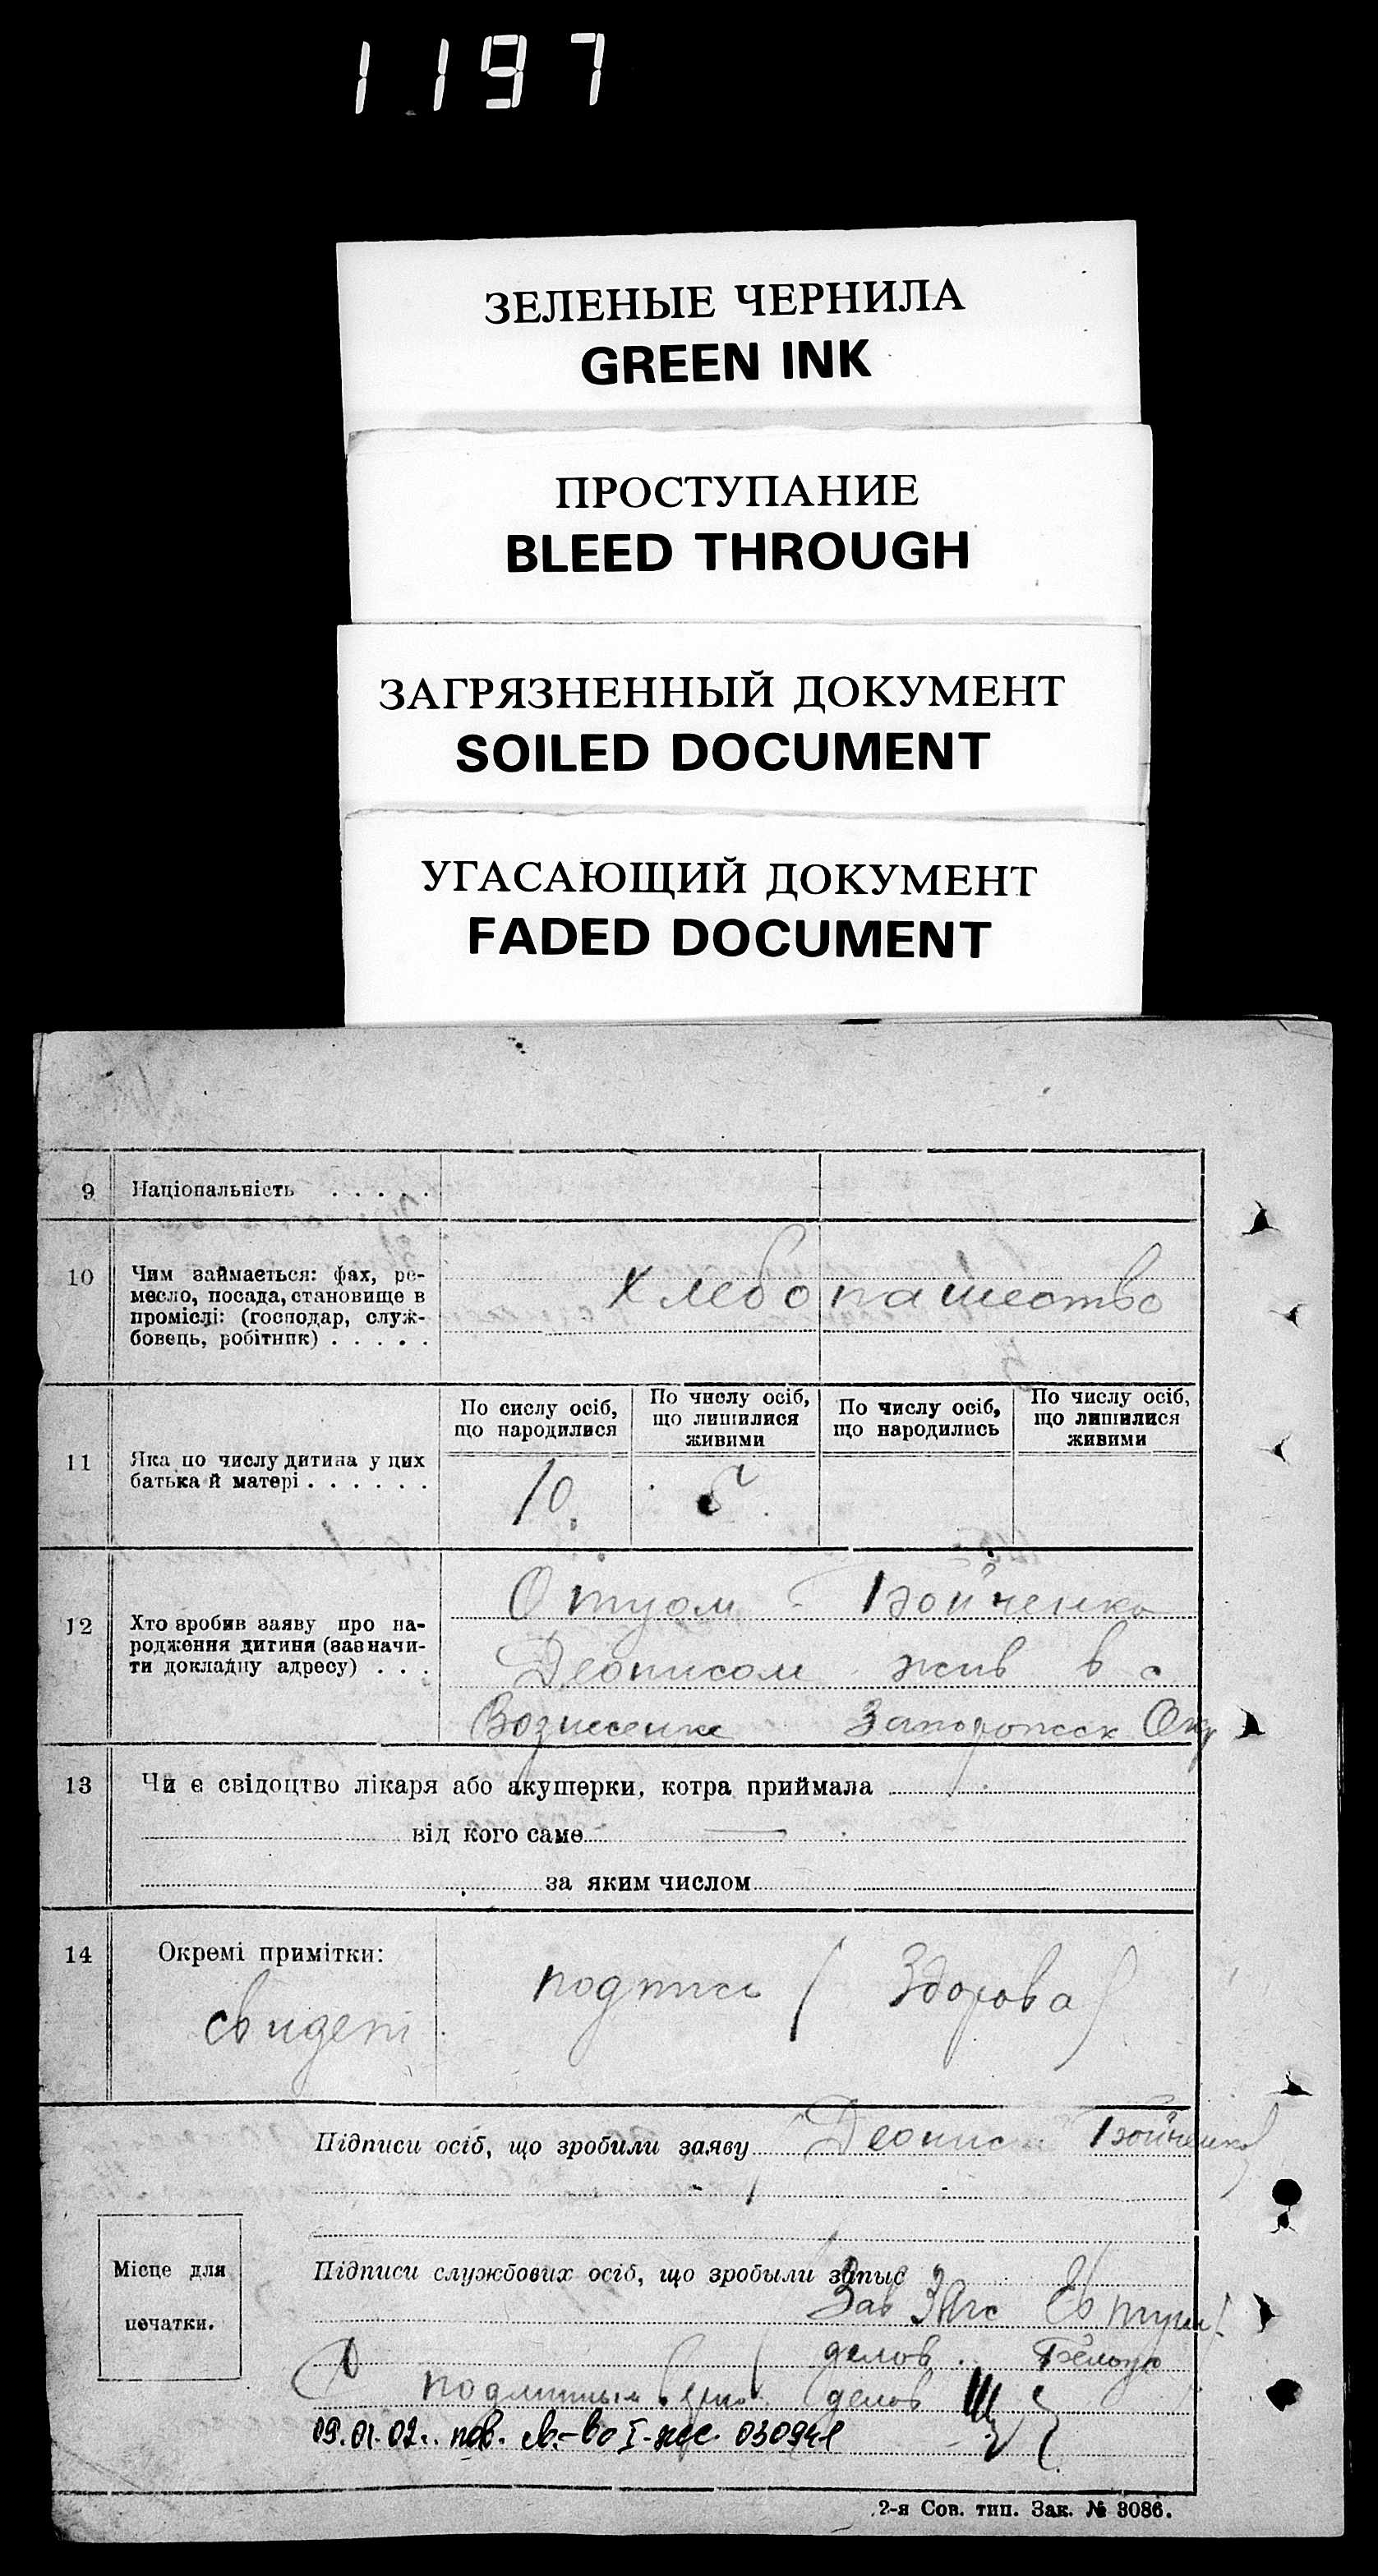 1197
ЗЕЛЕНЫЕ ЧЕРНИЛА
GREEN INK
ПРОСТУПАНИЕ
BLEED THROUGH
ЗАГРЯЗНЕННЫЙ ДОКУМЕНТ
SOILED DOCUMENT
УГАСАЮЩИЙ ДОКУМЕНТ
FADED DOCUMENT
9 Національність . . . . .
10 Чим займається: фах, ре-
месло, посада, становище в
проміслі: (господар, служ-
бовець, робітник) . . . . .
Хлебопашество
11 Яка по числу дитина у цих
батька й матері . . . . . .
По сислу осіб,
що народилися
По числу осіб,
що лишилися
живими
По числу осіб,
що народились
По числу осіб,
що лишилися
живими
10
12 Хто зробив заяву про на-
родження дитиня (зазначи-
ти докладну адресу) . . .
Отцом Бойченко
Деонисом жив в с
Вознесенке Запорожск Окр
13 Чи є свідоцтво лікаря або акушерки, котра приймала
від кого саме
за яким числом
14 Окремі примітки:
свидет
подпись (Здорова)
Підписи осіб, що зробили заяву Деонис Бойченко
Місце для
печатки.
Підписи службових осіб, що зробыли запыс
Зав ЗАГС
делов.
подлинным делов
09.01.02г. пов. св.-во I-жс 030941
2-я Сов. тип. Зак. № 3086.